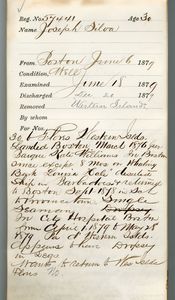 Reg. No. 57441 Age 30
Name Joseph Silva
From Boston June 6 1879
Condition Well
Examined June 18 1879
Discharged Dec 20 1879
Removed Western Islands
By whom
For No.
30 b. Flores Western Islds.
Landed Boston March 1876 per
Barque Kate Williams In Boston
since except 8 mos on Whaling
Bark Louisa
Ship in Barbadoes & returned
to Boston Sept 1878 in Schr
Single
Seaman
In City Hospital Boston
from April 1 1879 to May 28
1879
Appears to have Dropsy
in Legs
Wants to return to